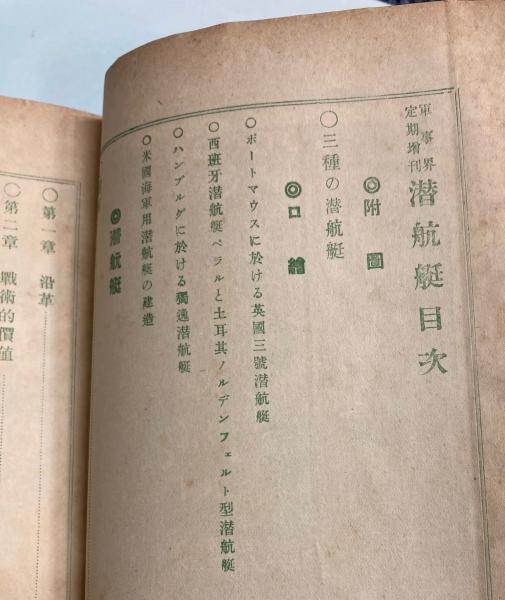 軍事界
定期增刊
潜航艇目次
◎附圖
○三種の潜航艇
◎口繪
○ポートマウスに於ける英國三號潜航艇
○西班牙潜航艇ペラルと土耳其ノルデンフェルト型潜航艇
○ハンブルグに於ける獨逸潜航艇
○米國海軍用潜航艇の建造
◎潜航艇
○第一章 沿革
○第二章 戰術的價値